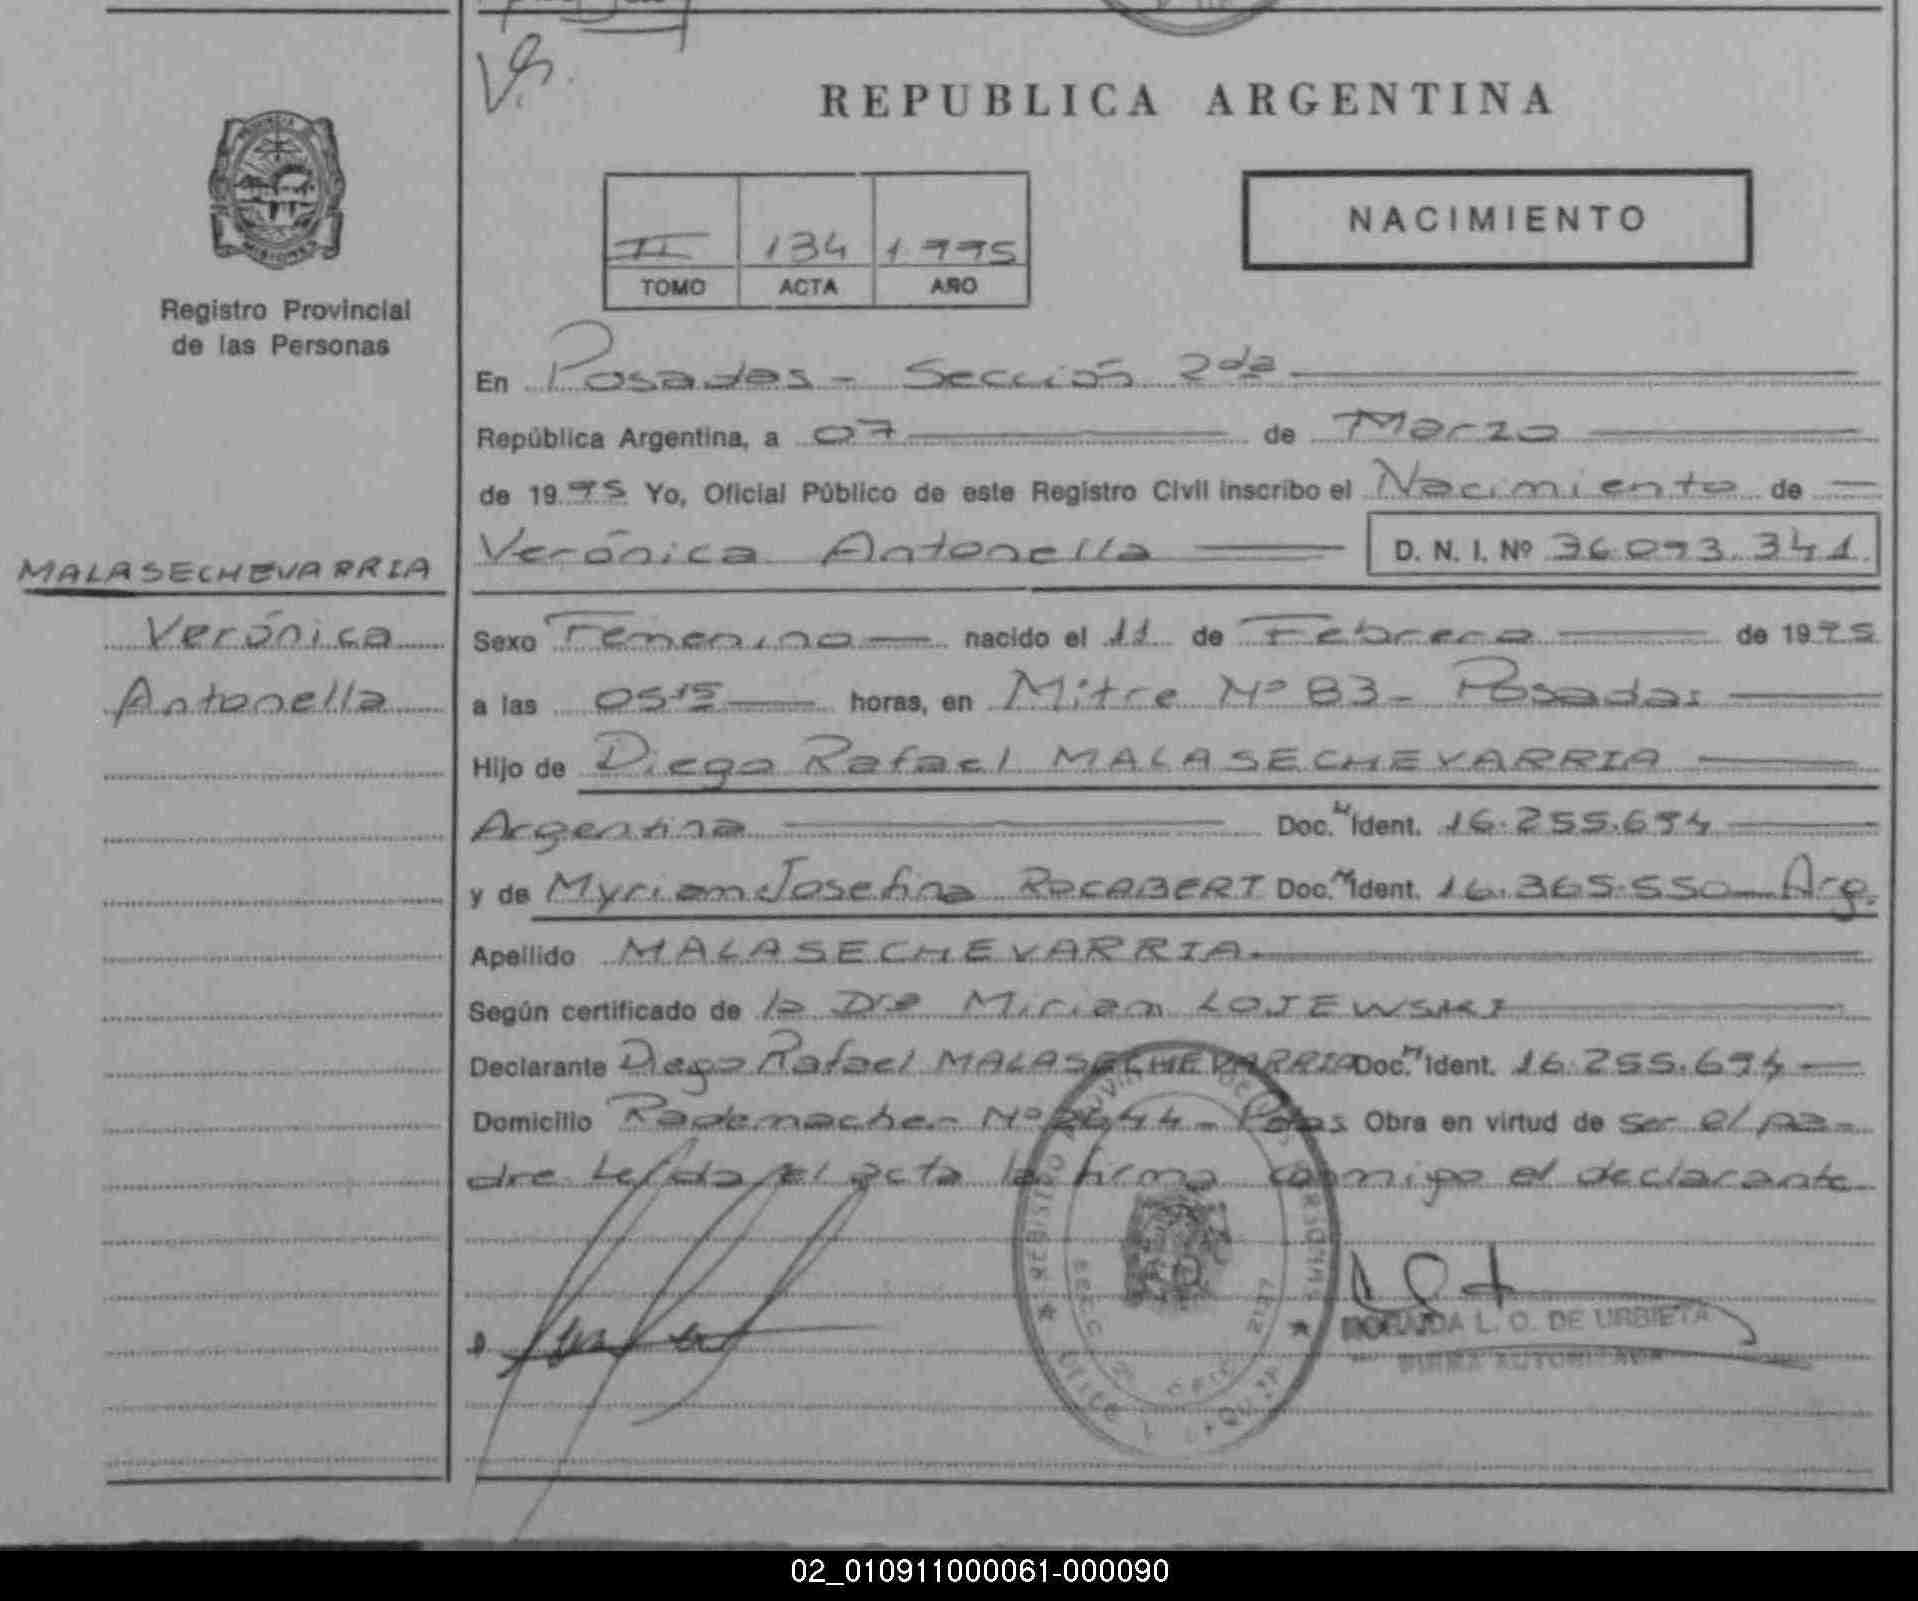 REPUBLICA ARGENTINA
II 134 1.995
TOMO ACTA AÑO
NACIMIENTO
PROVINCIA DE MISIONES
Registro Provincial
de las Personas
MALASECHEVARRIA
Verónica
Antonella
En Posadas - Sección 2da
República Argentina, a 07 de Marzo
de 1995 Yo, Oficial Público de este Registro Civil inscribo el Nacimiento de
Verónica Antonella D. N. I. Nº 36.093.341
Sexo Femenino nacido el 11 de Febrero de 1995
a las 05 15 horas, en Mitre Nº 83 - Posadas
Hijo de Diego Rafael MALASECHEVARRIA
Argentina Doc. N Ident. 16.255.694
y de Myriam Josefina ROCABERT Doc. N Ident. 16.365.550 - Arg.
Apellido MALASECHEVARRIA.
Según certificado de la Dra Miriam LOJEWSKI
Declarante Diego Rafael MALASECHEVARRIA Doc. N Ident. 16.255.694
Domicilio Rademacher Nº 2644 - Pdas Obra en virtud de ser el pa-
dre Leída el acta la firma conmigo el declarante
REGISTRO PROVINCIAL DE LAS PERSONAS
SECC 2
L. O. DE URBIETA
FIRMA AUTORIZADA
02_010911000061-000090